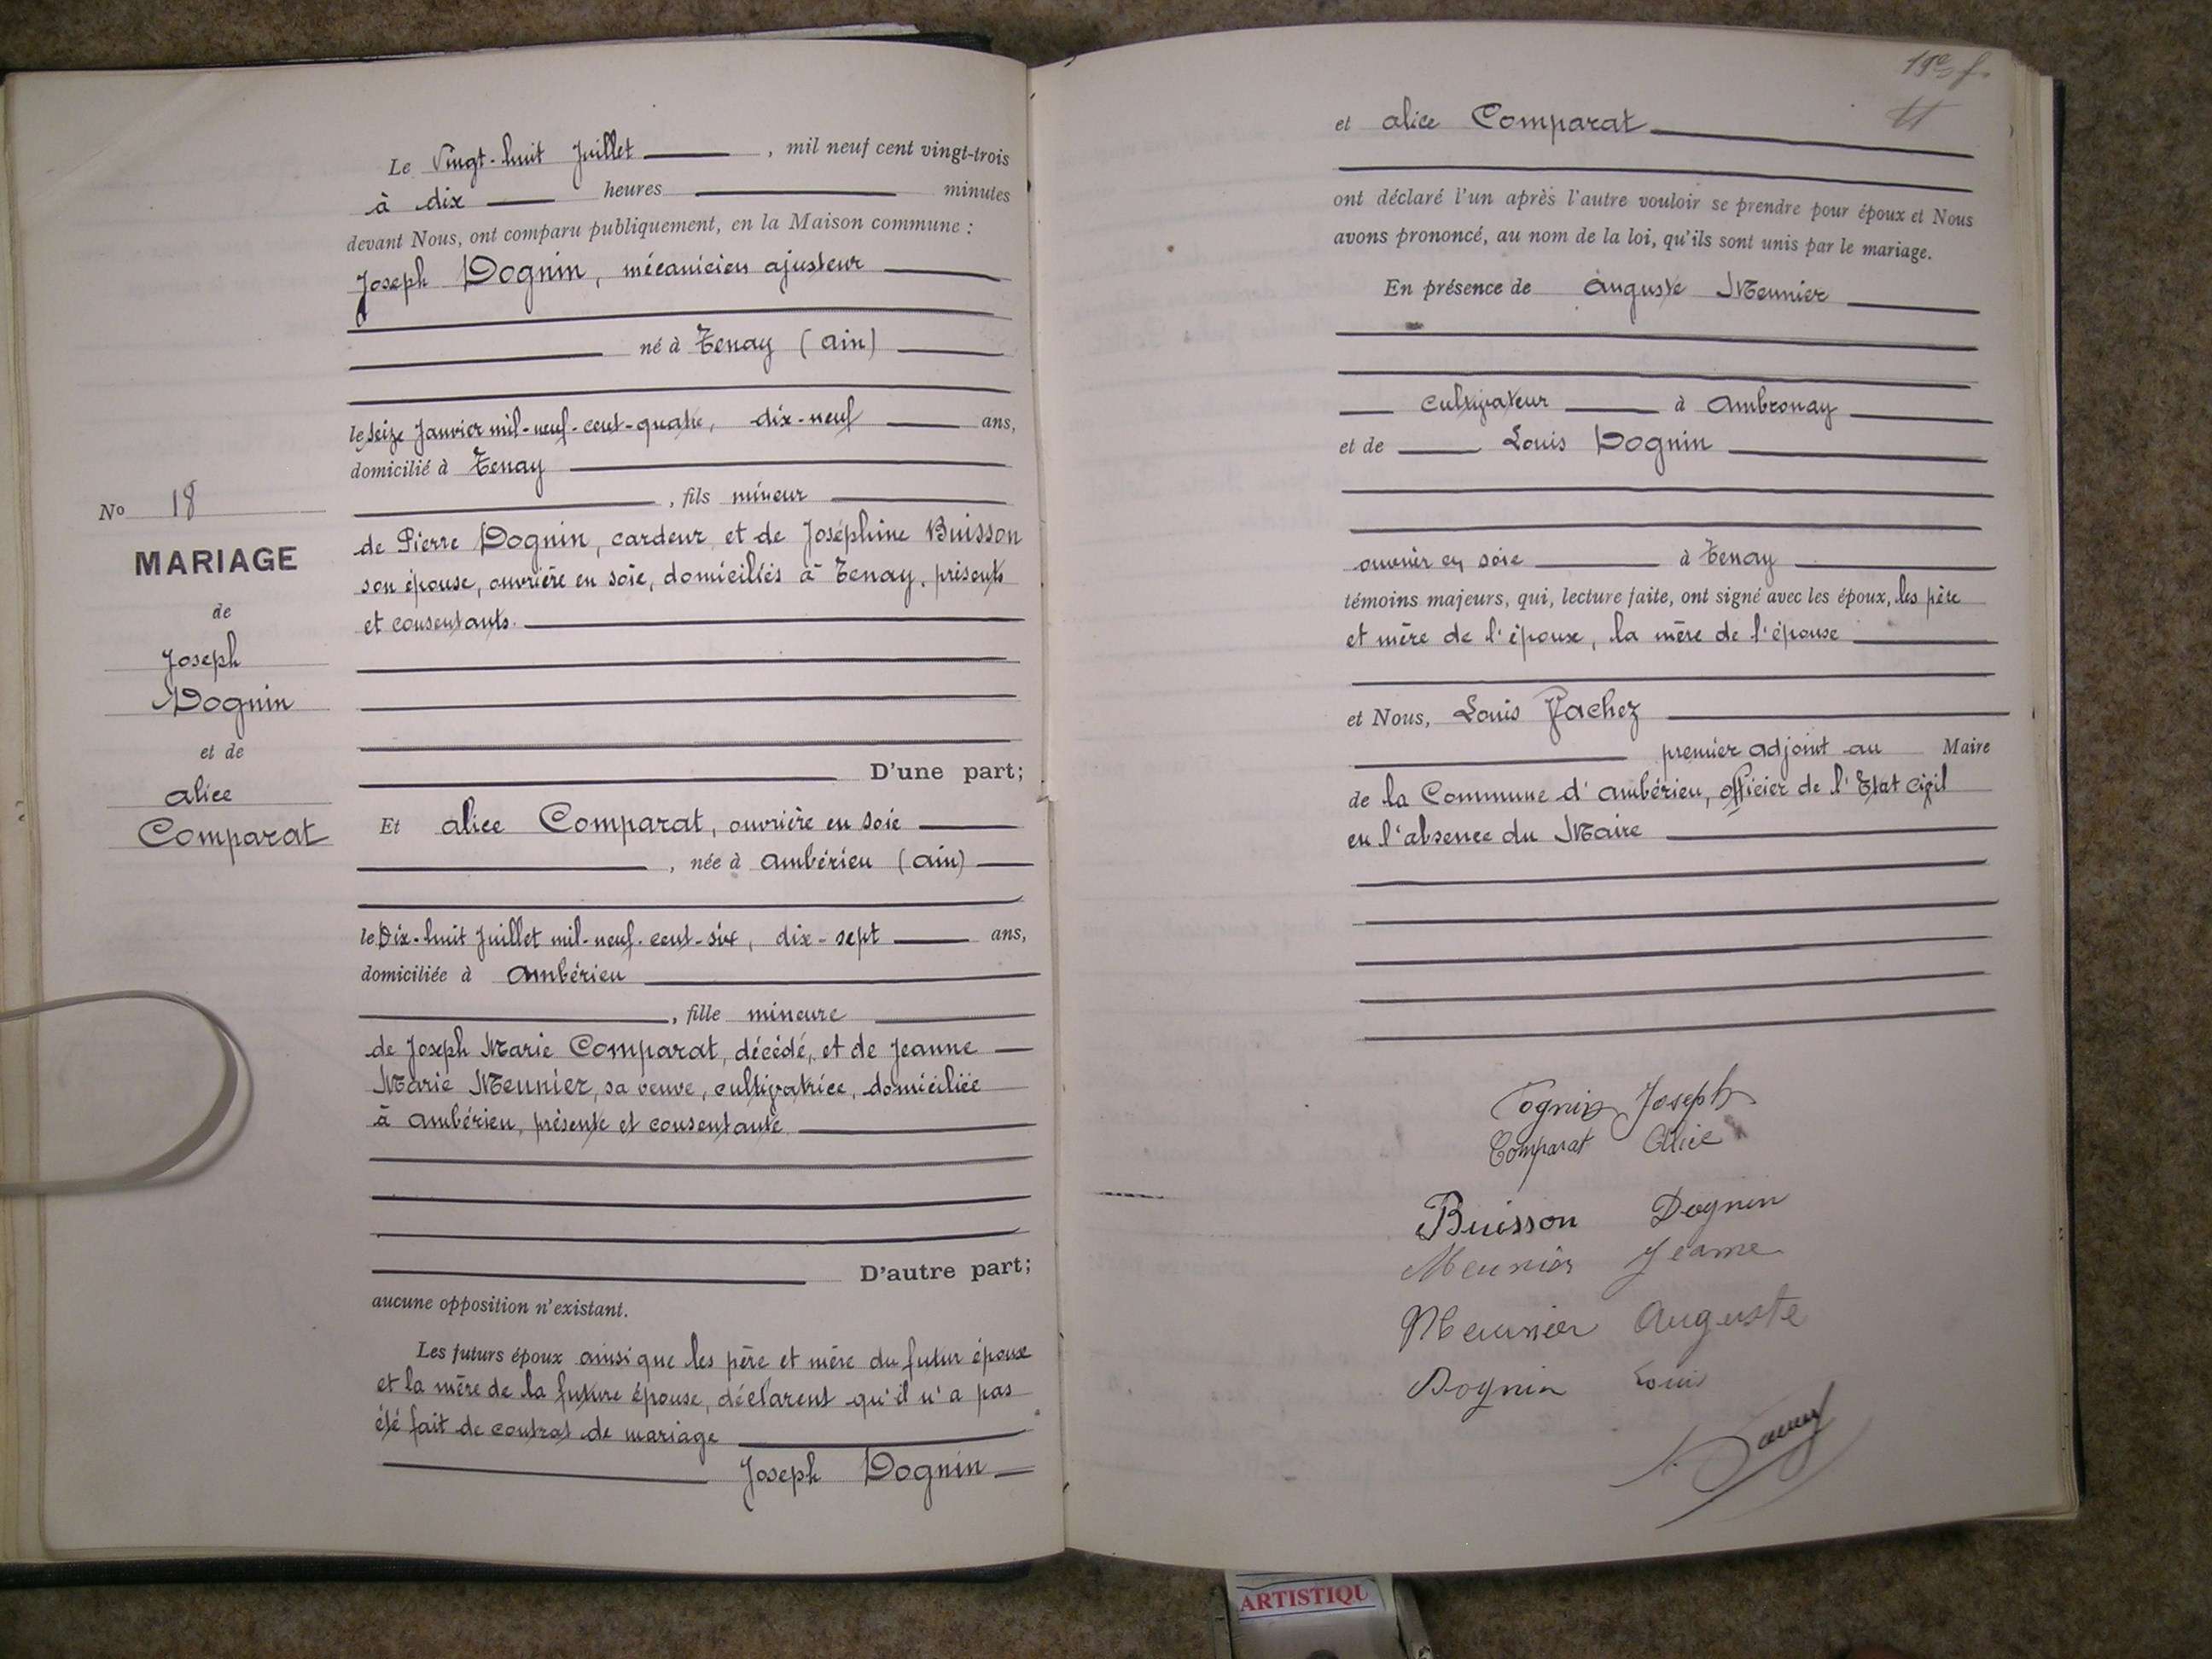 Le Vingt-huit Juillet, mil neuf cent vingt-trois
à dix heures minutes
devant Nous, ont comparu publiquement, en la Maison commune :
Joseph Dognin, mécanicien ajusteur
né à Tenay (ain)
le seize Janvier mil-neuf-cent-quatre, dix-neuf ans,
domicilié à Tenay
, fils mineur
de Pierre Dognin, cardeur, et de Joséphine Buisson
son épouse, ouvrière en soie, domiciliés à Tenay, présents
et consentants.
D'une part;
Et alice Comparat, ouvrière en soie
, née à ambérieu (ain)
le Dix-huit Juillet mil-neuf-cent-six, dix-sept ans,
domiciliée à ambérieu
, fille mineure
de Joseph Marie Comparat, décédé, et de Jeanne
Marie Meunier, sa veuve, cultivatrice, domiciliée
à ambérieu, présente et consentante.
D'autre part;
aucune opposition n'existant.
Les futurs époux ainsi que les père et mère du futur époux
et la mère de la future épouse, déclarent qu'il n'a pas
été fait de contrat de mariage
Joseph Dognin
No 18
MARIAGE
de
Joseph
Dognin
et de
alice
Comparat
11e f.
et alice Comparat
ont déclaré l'un après l'autre vouloir se prendre pour époux et Nous
avons prononcé, au nom de la loi, qu'ils sont unis par le mariage.
En présence de auguste Meunier
cultivateur à ambronay
et de Louis Dognin
ouvrier en soie à Tenay
témoins majeurs, qui, lecture faite, ont signé avec les époux, les père
et mère de l'époux, la mère de l'épouse
et Nous, Louis Pachez
premier adjoint au Maire
de la Commune d'ambérieu, officier de l'Etat civil
en l'absence du Maire
Dognin Joseph
Comparat Alice
Buisson Dognin
Meunier Jeanne
Meunier Auguste
Dognin Louis
ARTISTIQU